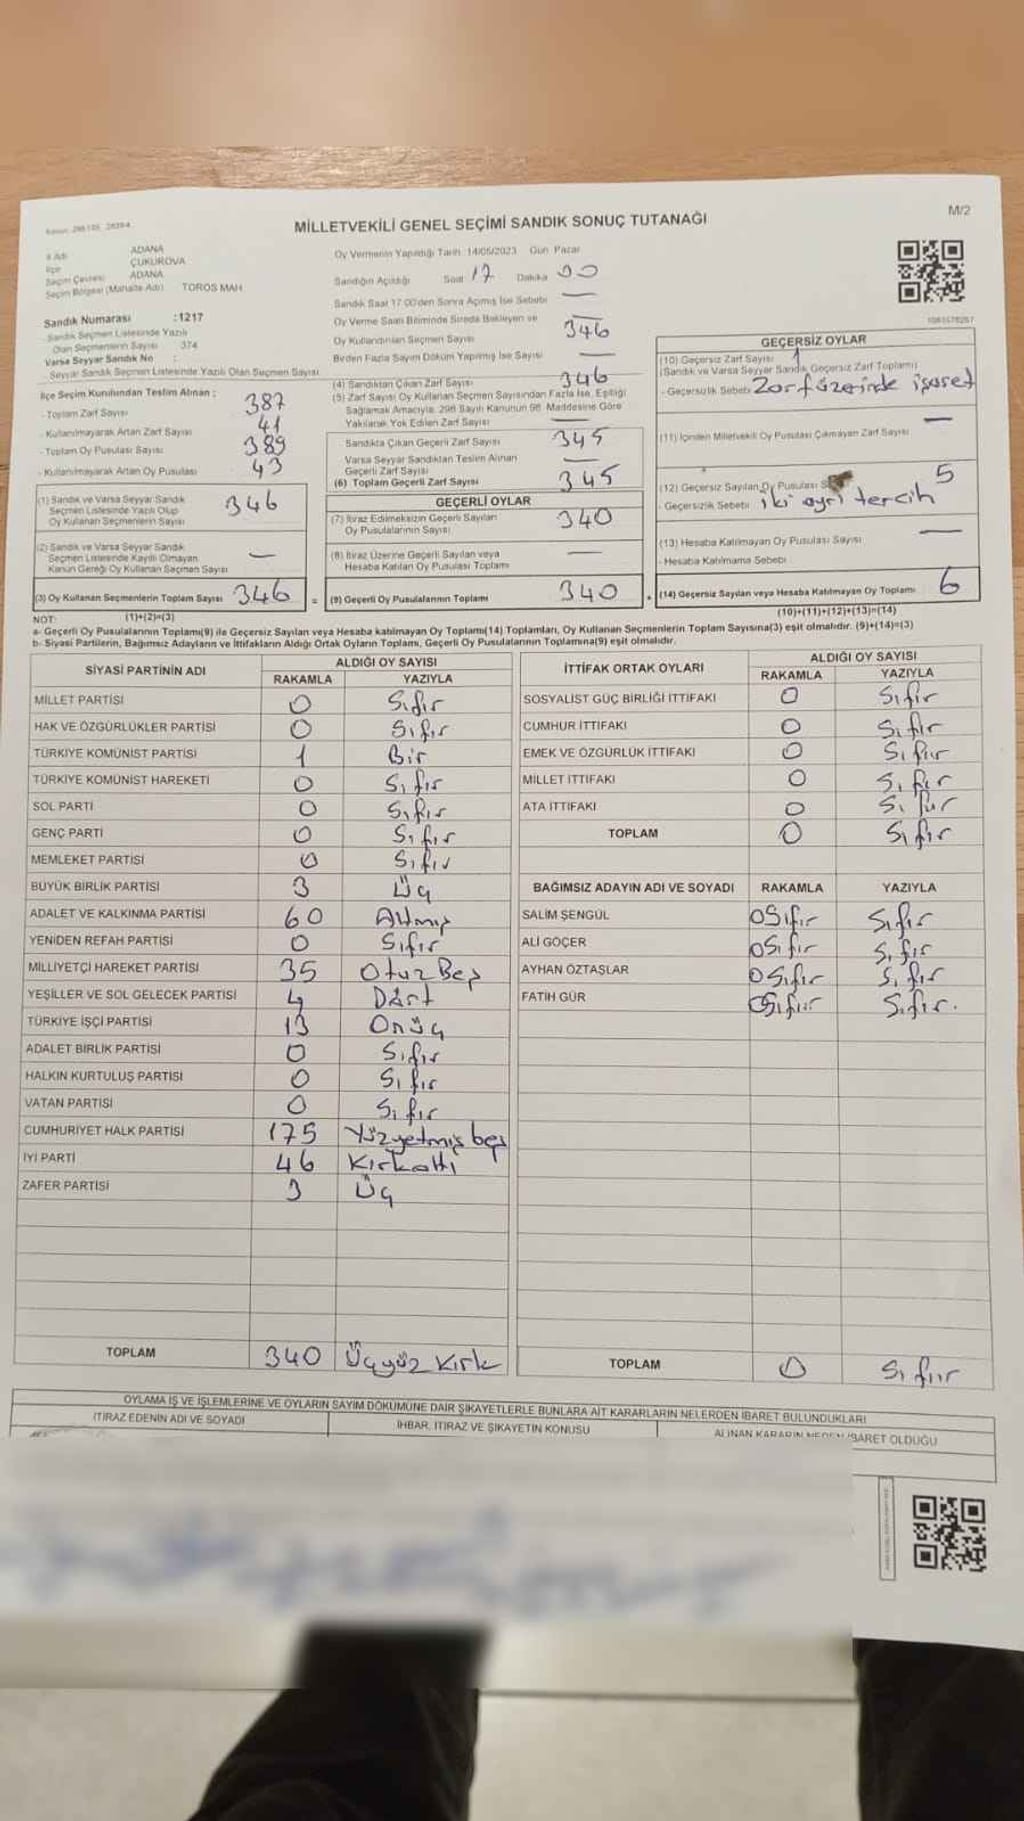 M/2
MİLLETVEKİLİ GENEL SEÇİMİ SANDIK SONUÇ TUTANAĞI
İl Adı ADANA
İlçe ÇUKUROVA
Seçim Çevresi ADANA
Seçim Bölgesi (Mahalle Adı) TOROS MAH
Sandık Numarası :1217
Sandık Seçmen Listesinde Yazılı
Olan Seçmenlerin Sayısı 374
Varsa Seyyar Sandık No :
Seyyar Sandık Seçmen Listesinde Yazılı Olan Seçmen Sayısı
Oy Vermenin Yapıldığı Tarih: 14/05/2023 Gün Pazar
Sandığın Açıldığı Saat 17 Dakika 00
Sandık Saat 17:00'den Sonra Açmış İse Sebebi —
Oy Verme Saati Bitiminde Sırada Bekleyen ve —
Oy Kullandırılan Seçmen Sayısı 346
Birden Fazla Sayım Döküm Yapılmış İse Sayısı —
İlçe Seçim Kurulundan Teslim Alınan ;
- Toplam Zarf Sayısı 387
- Kullanılmayarak Artan Zarf Sayısı 41
- Toplam Oy Pusulası Sayısı 389
- Kullanılmayarak Artan Oy Pusulası 43
(1) Sandık ve Varsa Seyyar Sandık
Seçmen Listesinde Yazılı Olup
Oy Kullanan Seçmenlerin Sayısı 346
(2) Sandık ve Varsa Seyyar Sandık
Seçmen Listesinde Kayıtlı Olmayan
Kanun Gereği Oy Kullanan Seçmen Sayısı —
(3) Oy Kullanan Seçmenlerin Toplam Sayısı 346 =
(1)+(2)=(3)
(4) Sandıktan Çıkan Zarf Sayısı 346
(5) Zarf Sayısı Oy Kullanan Seçmen Sayısından Fazla İse, Eşitliği
Sağlamak Amacıyla, 298 Sayılı Kanunun 98. Maddesine Göre
Yakılarak Yok Edilen Zarf Sayısı —
Sandıkta Çıkan Geçerli Zarf Sayısı 345
Varsa Seyyar Sandıktan Teslim Alınan
Geçerli Zarf Sayısı —
(6) Toplam Geçerli Zarf Sayısı 345
GEÇERLİ OYLAR
(7) İtiraz Edilmeksizin Geçerli Sayılan
Oy Pusulalarının Sayısı 340
(8) İtiraz Üzerine Geçerli Sayılan veya
Hesaba Katılan Oy Pusulası Toplamı —
(9) Geçerli Oy Pusulalarının Toplamı 340 +
GEÇERSİZ OYLAR
(10) Geçersiz Zarf Sayısı 1
(Sandık ve Varsa Seyyar Sandık Geçersiz Zarf Toplamı)
- Geçersizlik Sebebi Zarf üzerinde işaret
(11) İçinden Milletvekili Oy Pusulası Çıkmayan Zarf Sayısı —
(12) Geçersiz Sayılan Oy Pusulası 5
- Geçersizlik Sebebi iki ayrı tercih
(13) Hesaba Katılmayan Oy Pusulası Sayısı —
- Hesaba Katılmama Sebebi
(14) Geçersiz Sayılan veya Hesaba Katılmayan Oy Toplamı 6
(10)+(11)+(12)+(13)=(14)
NOT:
a- Geçerli Oy Pusulalarının Toplamı(9) ile Geçersiz Sayılan veya Hesaba katılmayan Oy Toplamı(14) Toplamları, Oy Kullanan Seçmenlerin Toplam Sayısına(3) eşit olmalıdır. (9)+(14)=(3)
b- Siyasi Partilerin, Bağımsız Adayların ve İttifakların Aldığı Ortak Oyların Toplamı, Geçerli Oy Pusulalarının Toplamına(9) eşit olmalıdır.
SİYASİ PARTİNİN ADI ALDIĞI OY SAYISI
RAKAMLA YAZIYLA
MİLLET PARTİSİ 0 Sıfır
HAK VE ÖZGÜRLÜKLER PARTİSİ 0 Sıfır
TÜRKİYE KOMÜNİST PARTİSİ 1 Bir
TÜRKİYE KOMÜNİST HAREKETİ 0 Sıfır
SOL PARTİ 0 Sıfır
GENÇ PARTİ 0 Sıfır
MEMLEKET PARTİSİ 0 Sıfır
BÜYÜK BİRLİK PARTİSİ 3 Üç
ADALET VE KALKINMA PARTİSİ 60 Altmış
YENİDEN REFAH PARTİSİ 0 Sıfır
MİLLİYETÇİ HAREKET PARTİSİ 35 Otuz Beş
YEŞİLLER VE SOL GELECEK PARTİSİ 4 Dört
TÜRKİYE İŞÇİ PARTİSİ 13 Onüç
ADALET BİRLİK PARTİSİ 0 Sıfır
HALKIN KURTULUŞ PARTİSİ 0 Sıfır
VATAN PARTİSİ 0 Sıfır
CUMHURİYET HALK PARTİSİ 175 Yüzyetmiş beş
İYİ PARTİ 46 Kırkaltı
ZAFER PARTİSİ 3 Üç
TOPLAM 340 Üçyüz Kırk
İTTİFAK ORTAK OYLARI ALDIĞI OY SAYISI
RAKAMLA YAZIYLA
SOSYALİST GÜÇ BİRLİĞİ İTTİFAKI 0 Sıfır
CUMHUR İTTİFAKI 0 Sıfır
EMEK VE ÖZGÜRLÜK İTTİFAKI 0 Sıfır
MİLLET İTTİFAKI 0 Sıfır
ATA İTTİFAKI 0 Sıfır
TOPLAM 0 Sıfır
BAĞIMSIZ ADAYIN ADI VE SOYADI RAKAMLA YAZIYLA
SALİM ŞENGÜL 0Sıfır Sıfır
ALİ GÖÇER 0Sıfır Sıfır
AYHAN ÖZTAŞLAR 0Sıfır Sıfır
FATİH GÜR 0Sıfır Sıfır.
TOPLAM 0 Sıfır
OYLAMA İŞ VE İŞLEMLERİNE VE OYLARIN SAYIM DÖKÜMÜNE DAİR ŞİKAYETLERLE BUNLARA AİT KARARLARIN NELERDEN İBARET BULUNDUKLARI
İTİRAZ EDENİN ADI VE SOYADI
İHBAR, İTİRAZ VE ŞİKAYETİN KONUSU
ALINAN KARARIN NEDEN İBARET OLDUĞU